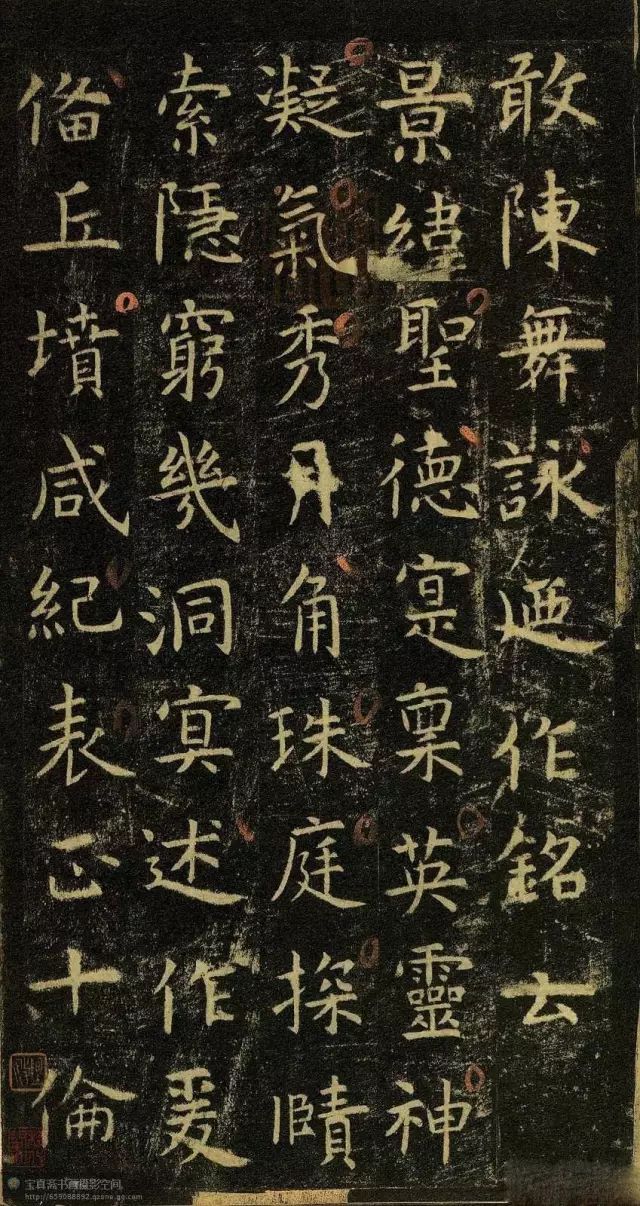 敢陳舞詠迺作銘云
景緯聖德寔稟英靈神
凝氣秀月角珠庭探賾
索隱窮幾洞冥述作爰
備丘墳咸紀表正十倫
宝真斋书画摄影空间
http://659088892.qzone.qq.com